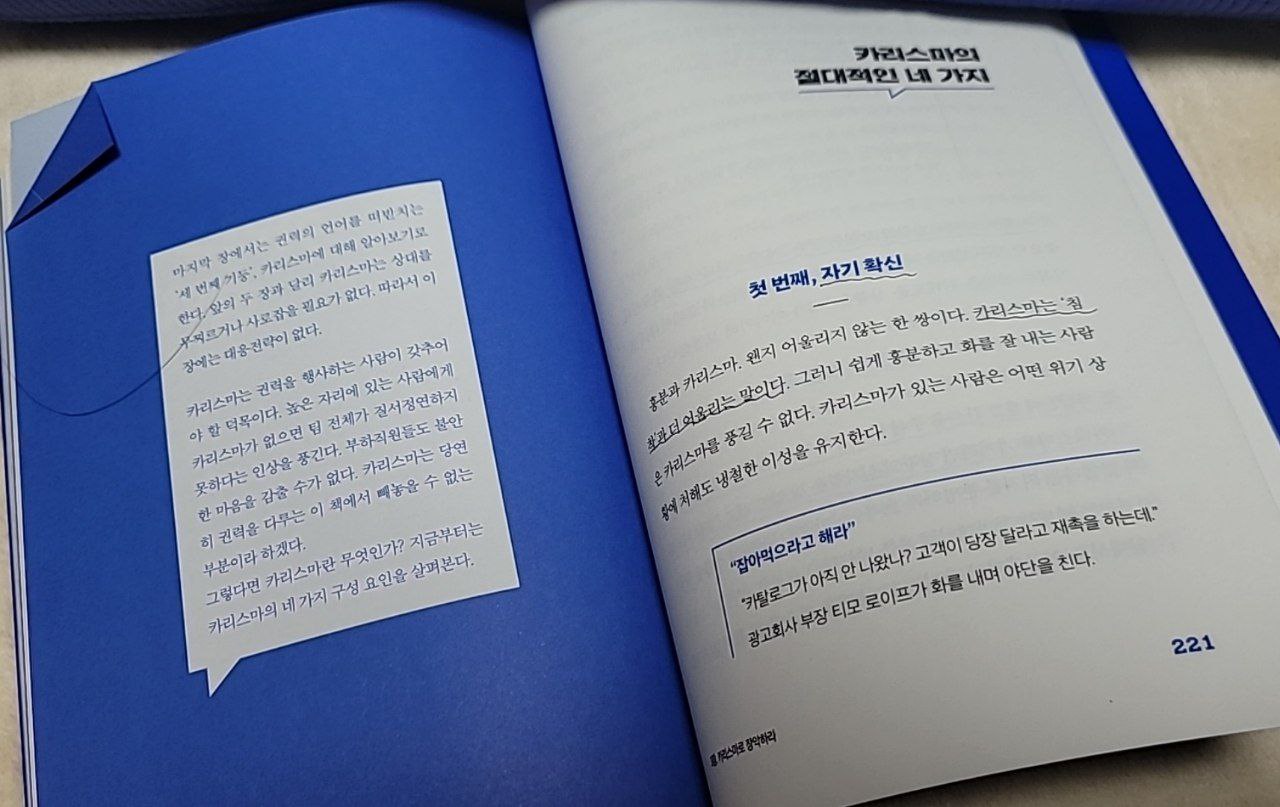 마지막 장에서는 권력의 언어를 떠받치는
'세 번째 기둥', 카리스마에 대해 알아보기로
한다. 앞의 두 장과 달리 카리스마는 상대를
무찌르거나 사로잡을 필요가 없다. 따라서 이
장에는 대응전략이 없다.
카리스마는 권력을 행사하는 사람이 갖추어
야 할 덕목이다. 높은 자리에 있는 사람에게
카리스마가 없으면 팀 전체가 질서정연하지
못하다는 인상을 풍긴다. 부하직원들도 불안
한 마음을 감출 수가 없다. 카리스마는 당연
히 권력을 다루는 이 책에서 빼놓을 수 없는
부분이라 하겠다.
그렇다면 카리스마란 무엇인가? 지금부터는
카리스마의 네 가지 구성 요인을 살펴본다.
카리스마의
절대적인 네 가지
첫 번째, 자기 확신
흥분과 카리스마. 왠지 어울리지 않는 한 쌍이다. 카리스마는 '침
착'과 더 어울리는 말이다. 그러니 쉽게 흥분하고 화를 잘 내는 사람
은 카리스마를 풍길 수 없다. 카리스마가 있는 사람은 어떤 위기 상
황에 처해도 냉철한 이성을 유지한다.
"잡아먹으라고 해라"
"카탈로그가 아직 안 나왔나? 고객이 당장 달라고 재촉을 하는데."
광고회사 부장 티모 로이프가 화를 내며 야단을 친다.
221
카리스마로 장악하라